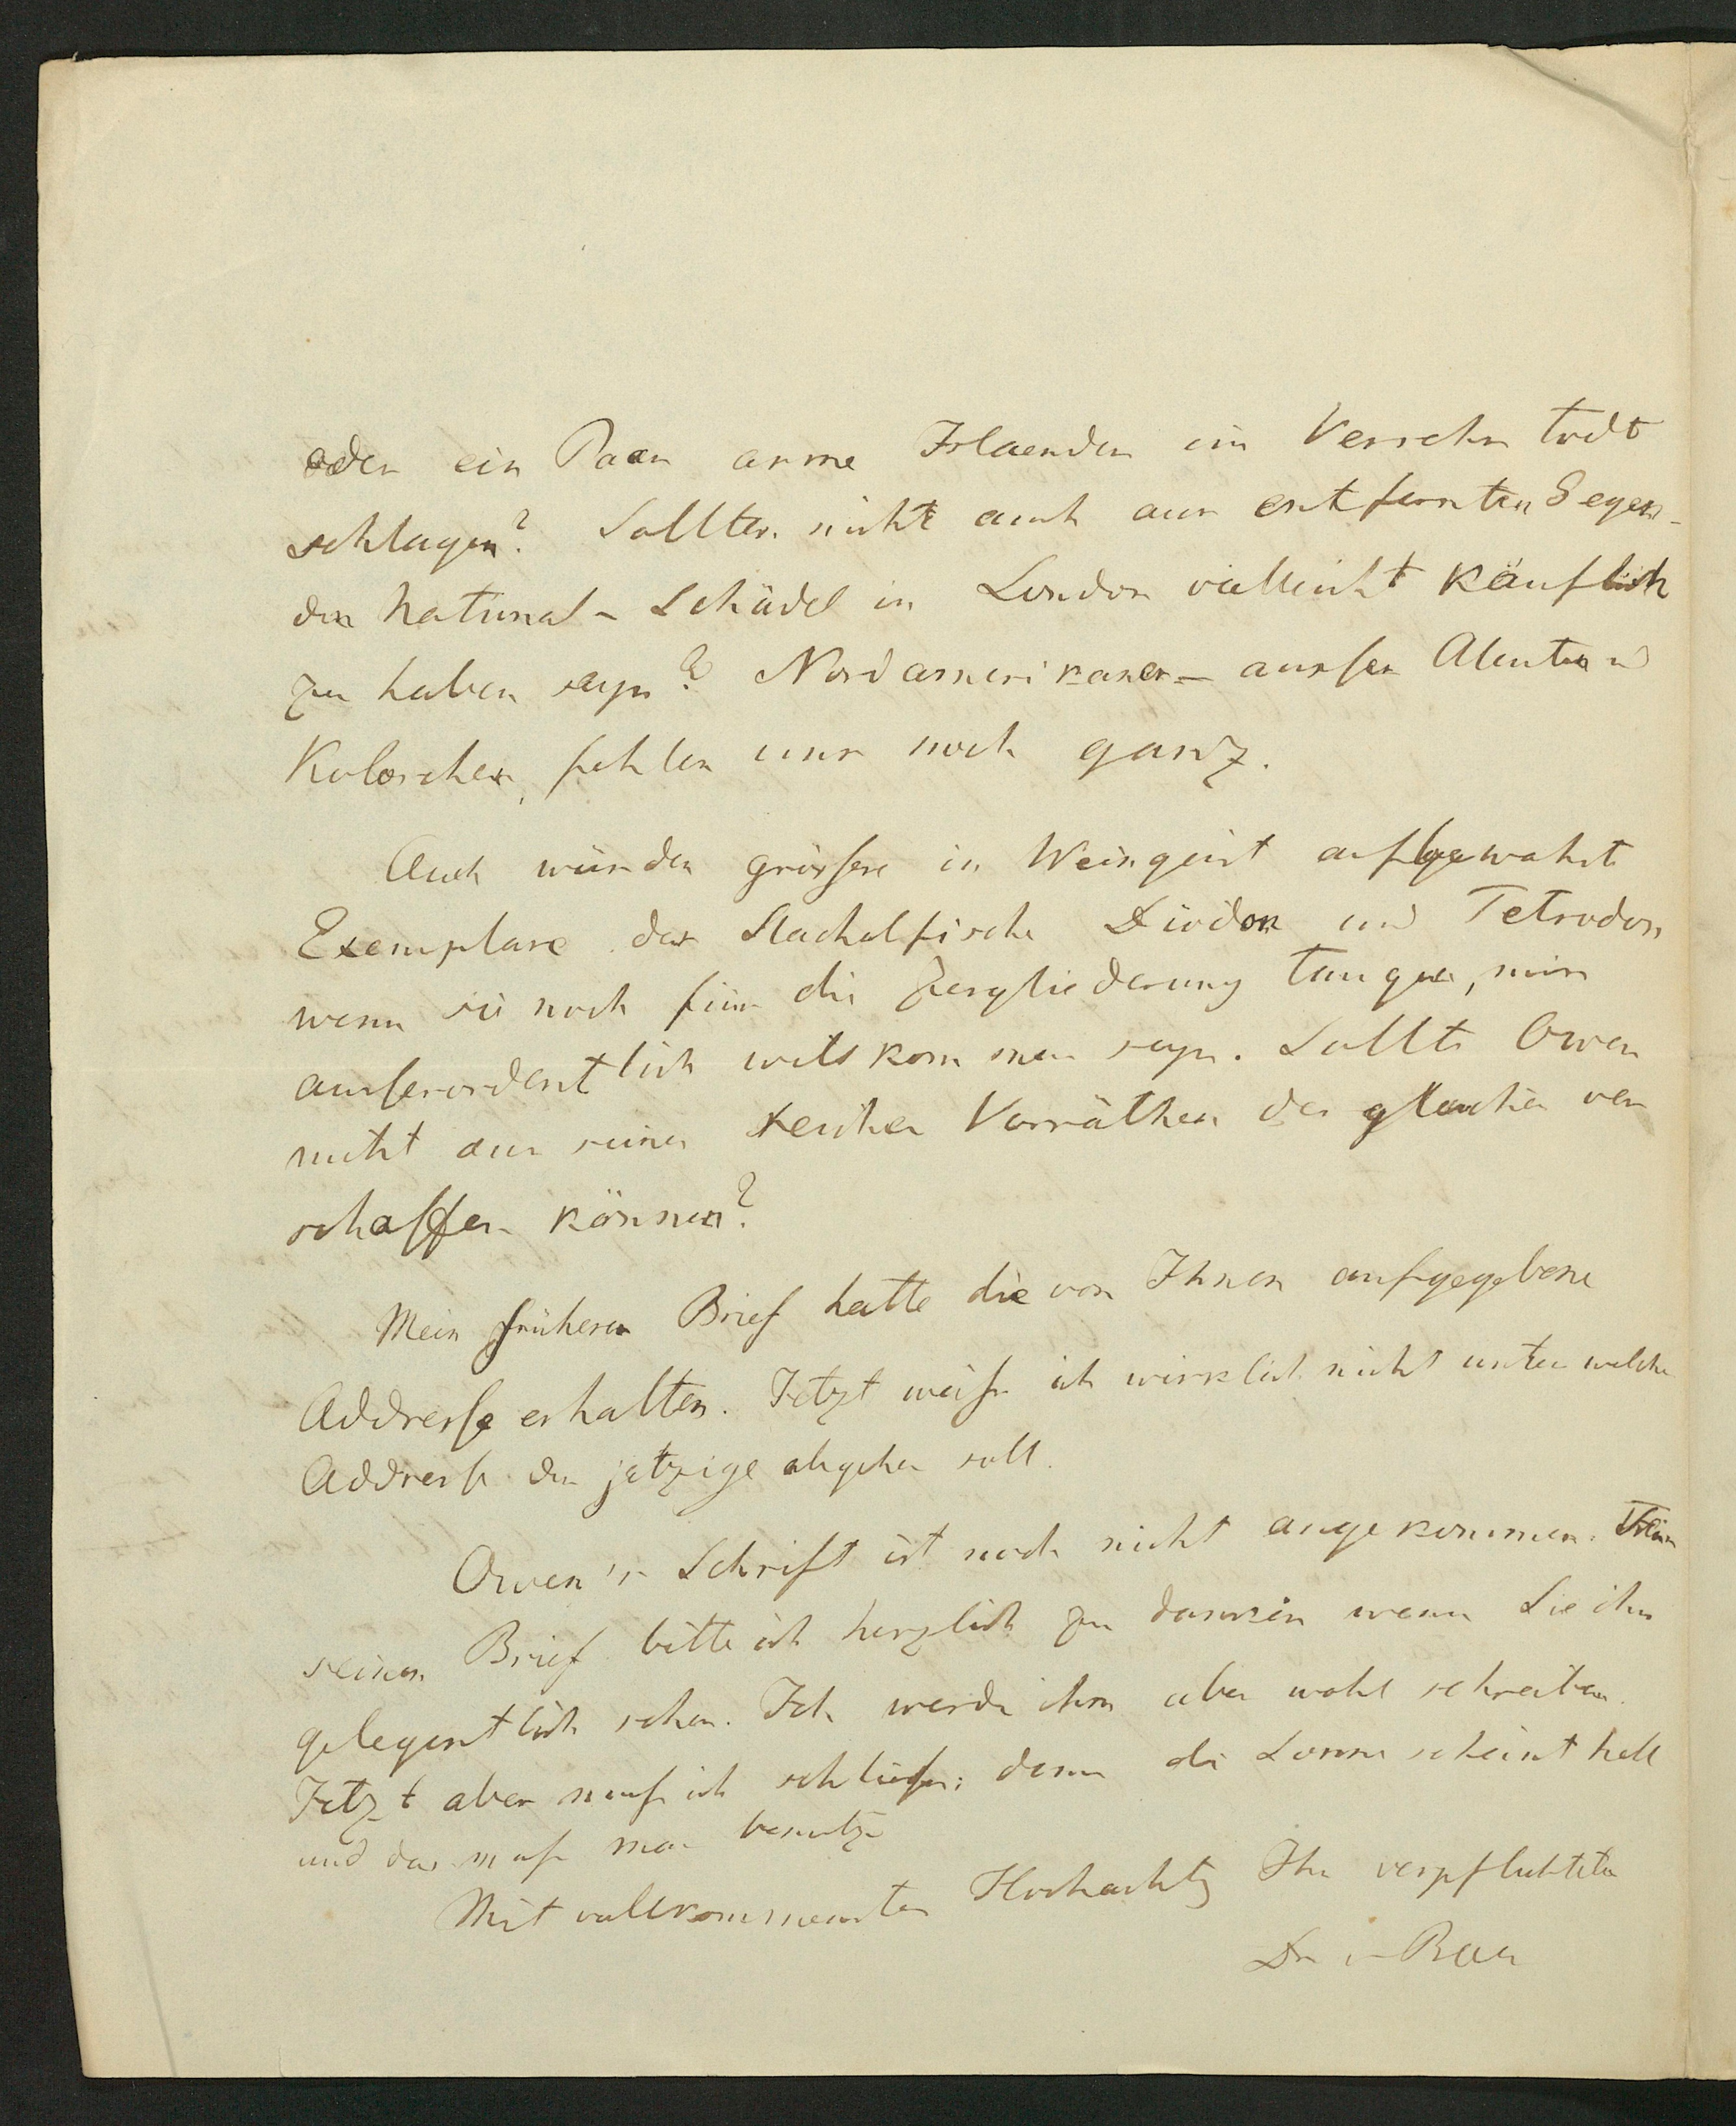 oder ein Paar arme Irlaender im Versehn todt
schlagen? Sollten nicht auch aus entfernten Gegen-
den National-Schädel in London vielleicht käuflich
zu haben seyn? Nordamerikaner – ausser Aleuten u
Koloschen, fehlen uns noch ganz.
Auch würden grössere in Weingeist aufbewahrte
Exemplare der Stachelfische Diodon und Tetrodon
wenn sie noch für die Zergliederung taugen, mir
ausserordentlich willkommen seyn. Sollte Owen
nicht aus seinen reichen Vorräthen der gleichen ver
schaffen können?
Mein früherer Brief hatte die von Ihnen aufgegebene
Addresse erhalten. Jetzt weiss ich wirklich nicht unter welcher
Addresse der jetzige abgehen soll.
Owen's Schrift ist noch nicht angekommen. Für
seinen Brief bitte ich herzlich zu danken wenn Sie ihn
gelegentlich sehen. Ich werde ihm aber wohl schreiben.
Jetzt aber muss ich schliessen; denn die Sonne scheint hell
und das muss man benutzen
Mit vollkommenster Hochachtg Ihr verpflichteter
Dr v Baer